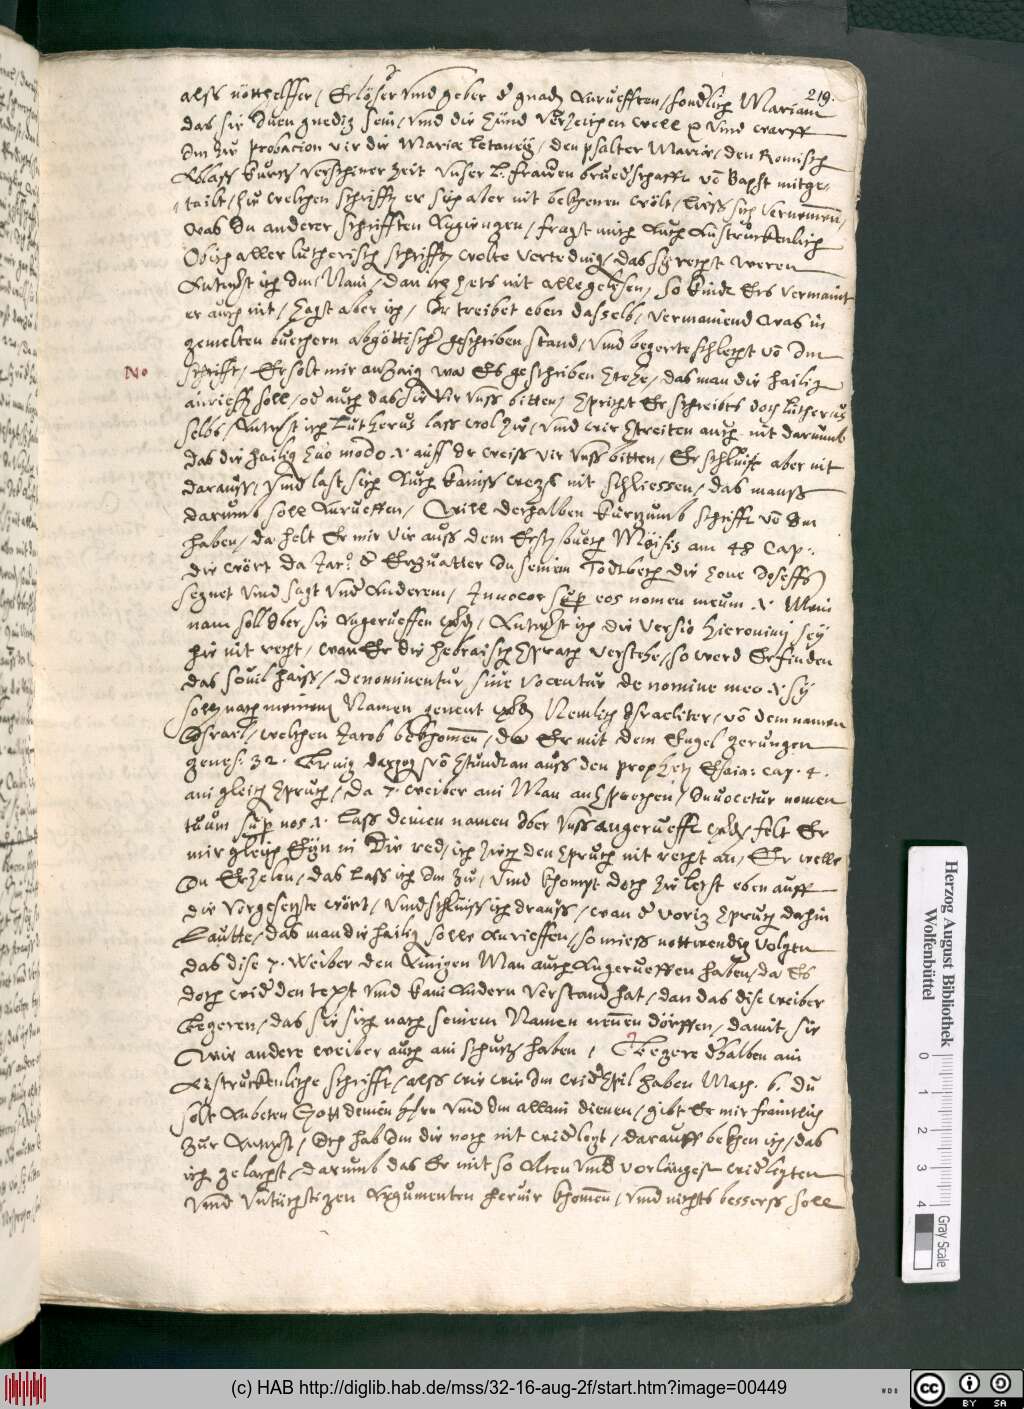 219.
alss nötthelffer / Erlöser vnnd geber d gnadn Anruefften / sonderlich Mariam
das sie Inen gnedig sein / vnnd die Sünd verzeichen well &c vnnd warff
Im zur probacion vir die Mariae letaney / den psalter Mariae / den Romisch
Ablass kurtz verschiner zeit vnser L. frawen bruedschafft vō Bapst mitge-
tailt / zu welchen schrifften er sich aber nit bekhenen wolt / liess sich vernemmen /
was In anderer schrifften Angiengen / fragt mich Auch Austruckenlich
Ob ich aller lutherisch schrifften wolte vertedingn / das sy recht weren
Antwort ich Im / Nain / dan ich hets nit alle gelesen / so kinde Ers vermaint
er auch nit / Sagt aber ich / Er treibet eben dasselb / vermainend was in
gemelten buechern abgöttischs geschriben stand / vnnd begerte schlecht vō Im
No
schrifft / Er solt mir anzaign wa Es geschriben stehe / das man die hailign
anrieffn soll / od auch das sie vir vnss bitten / Spricht Er schreibts doch Lutherus
selbs / Antwort ich Lutherus lass wol zu / vnnd wir streiten auch nit darumb
das die hailign suo modo &c auff Ir weiss vir vnss bitten / Er schluist aber nit
darauss / vnnd last sich Auch kainss wegs nit schliessen / das manss
darumb soll Anrueffen / Will derhalben kurtzumb schrifft vō Im
haben / da helt Er mir vir auss dem Erstn buech Moisis am 48 Cap:
die wort da Jacob d Ertzuatter In seinem Todtbeth die Söne Josephs
segnet vnnd sagt vnder Anderem / Inuocor super eos nomen meum &c Mein
nam soll vber sie Angerueffen werdn / Antwort ich die versio Hieronimj sey
hie nit recht / wan Er die hebraisch Sprach verstehe / so werd Er finden
das souil haiss / denominentur siue vocentur de nomine meo &c sy
solln nach meinem Namen genent werdn Nemlich Israeliter / vō dem namen
Israel / welchen Jacob bekhomen / da Er mit dem Engel gerungen
genes: 32. Bring dargegn vō stundt an auss den prophetn Esaia: cap. 4.
ain gleich Spruch / da 7. weiber ain Man ansprechen / Inuocetur nomen
tuum super nos &c Lass deinen namen vber vnss angerueft werdn / felt Er
mir gleich kyn in die red / ich zieh den Spruch nit recht an / Er welle
In Erzelen / das lass ich Im zu / vnnd khompt doch zu letst eben auff
die vorgesetzte wort / vnnd schliuss ich drauss / wan d vorig Spruch dahin
Lautte / das man die hailign solle Anrieffen / so miess nottwendig volgen
das dise 7. Weiber den Ainigen Man auch Angerueffen haben / da Es
doch wider den text vnnd kain Andern verstand hat / dan das dise weiber
begeren / das sie sich nach seinem Namen nennen dörffen / damit sie
Wie andere weiber auch ain schutz haben / Begere derhalben ain
Austruckenliche schrifft / alss wir wir Im widerspil haben Math. 6. du
solt Anbeten Gott deinen hern vnnd Im allain dienen / gibt Er mir fraintlich
zur Antwort / Ich hab Im die noch nit widerlegt / darauff bekhen ich / das
ich gelacht / darumb das Er mit so Alten vnnd vorlangest widerlegten
vnnd vntüchtigen Argumenten heruir khomen / vnnd nichts bessers soll
Herzog August Bibliothek
Wolfenbüttel
0 1 2 3 4
Gray Scale
(c) HAB http://diglib.hab.de/mss/32-16-aug-2f/start.htm?image=00449
WDB
cc
BY SA